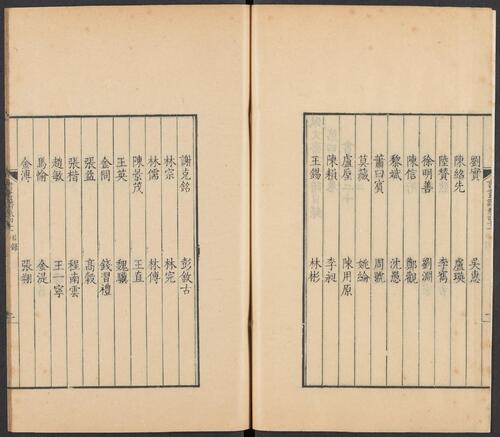 劉實 吳惠
陳紹先 盧瑛
陸贊 李寯
徐明善 劉淵
陳信 鄭觀
黎斌 沈愚
蕭曰賓 周號
莫藏 姚綸
盧原 陳用原
陳賴 李昶
王錫 林彬
謝克銘 彭敘古
林宗 林完
林儒 林傅
陳景茂 王直
王英 魏驥
金問 錢習禮
張益 高穀
張楷 程南雲
趙敏 王一寧
馬愉 金湜
金溥 張翔